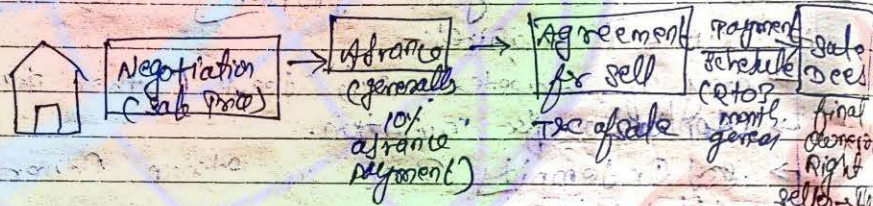 Negotiation
(sale Price)
Advance
(generally
10%
advance
payment)
Agreement
for sell
T&C of sale
Payment
schedule
(2 to 3
month
Sale
Deed
final
Right